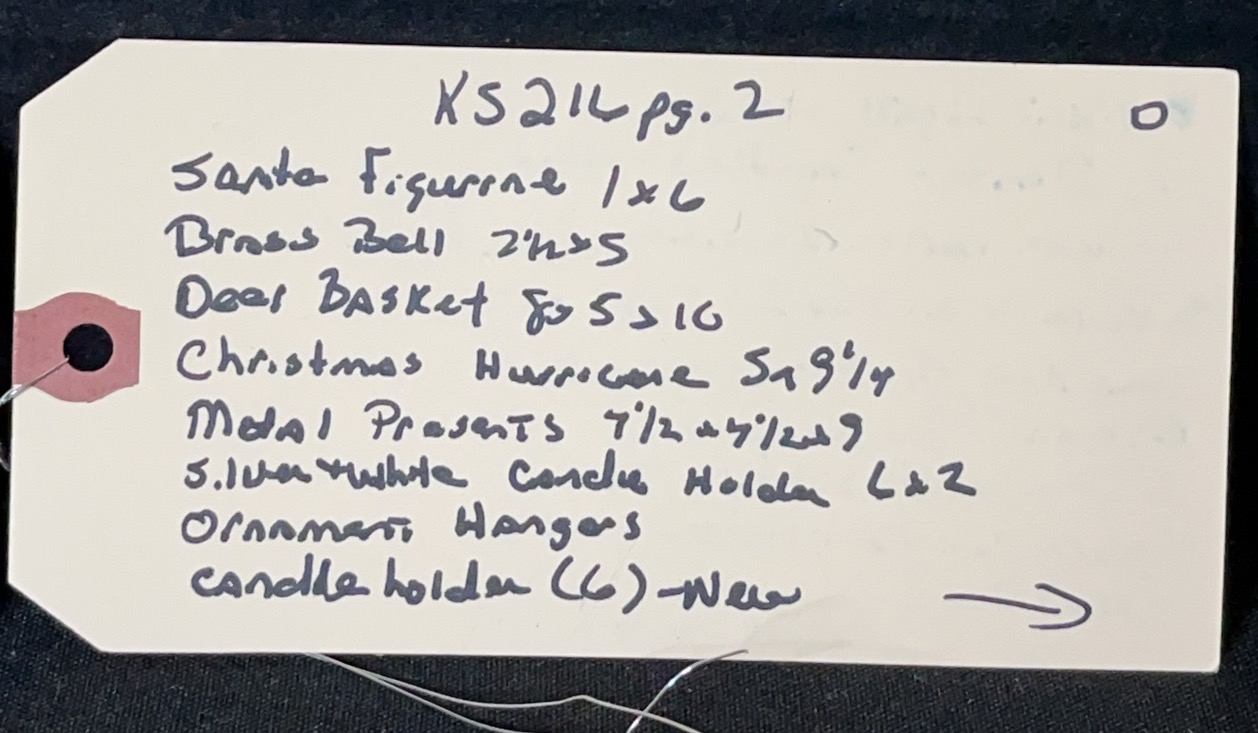 KS216 pg. 2 O
Santa Figurine 1x6
Brass Bell 2½x5
Deer Basket 8x5x10
Christmas Hurricane 5x9¼
Metal Presents 7½x7½x9
Silver+White Candle Holder 6x2
Ornament Hangers
Candle holder (6)-New →